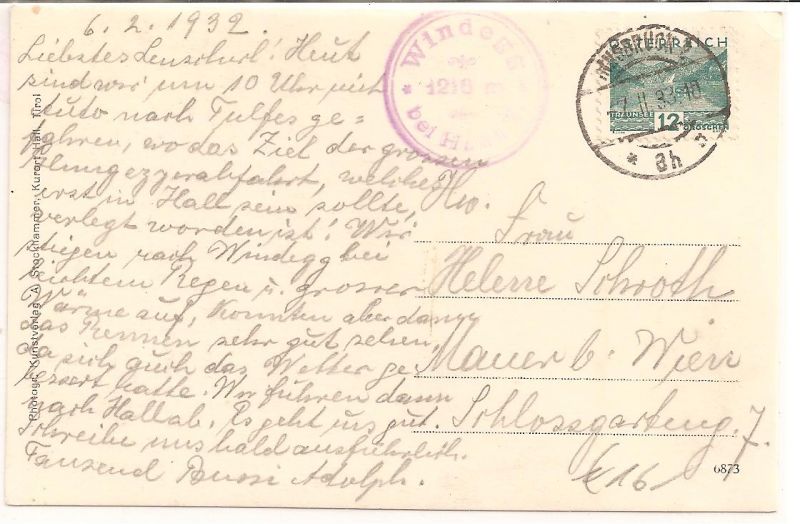 6. 2. 1932.
Liebstes Lenscherl! Heut
sind wir um 10 Uhr mit
Auto nach Tulfes ge=
fahren, wo das Ziel der grossen
Glungezzerabfahrt, welches
erst in Hall sein sollte,
verlegt worden ist! Wir
stiegen nach Windegg bei
leichtem Regen u. grosser
Wärme auf, konnten aber dann
das Rennen sehr gut sehen,
da sich auch das Wetter ge
bessert hatte. Wir fuhren dann
nach Hall ab. Es geht uns gut.
Schreibe uns bald ausführlich.
Tausend Bussi Adolph.
Photogr. Kunstverlag A. Stockhammer, Kurort Hall, Tirol
* Windegg *
1218 m
bei Hall
ÖSTERREICH
TRAUNSEE 12 GROSCHEN
INNSBRUCK
* 8h
Hw.
Frau
Helene Schroth
Mauer b. Wien
Schlossgarteng. 7.
16
6873